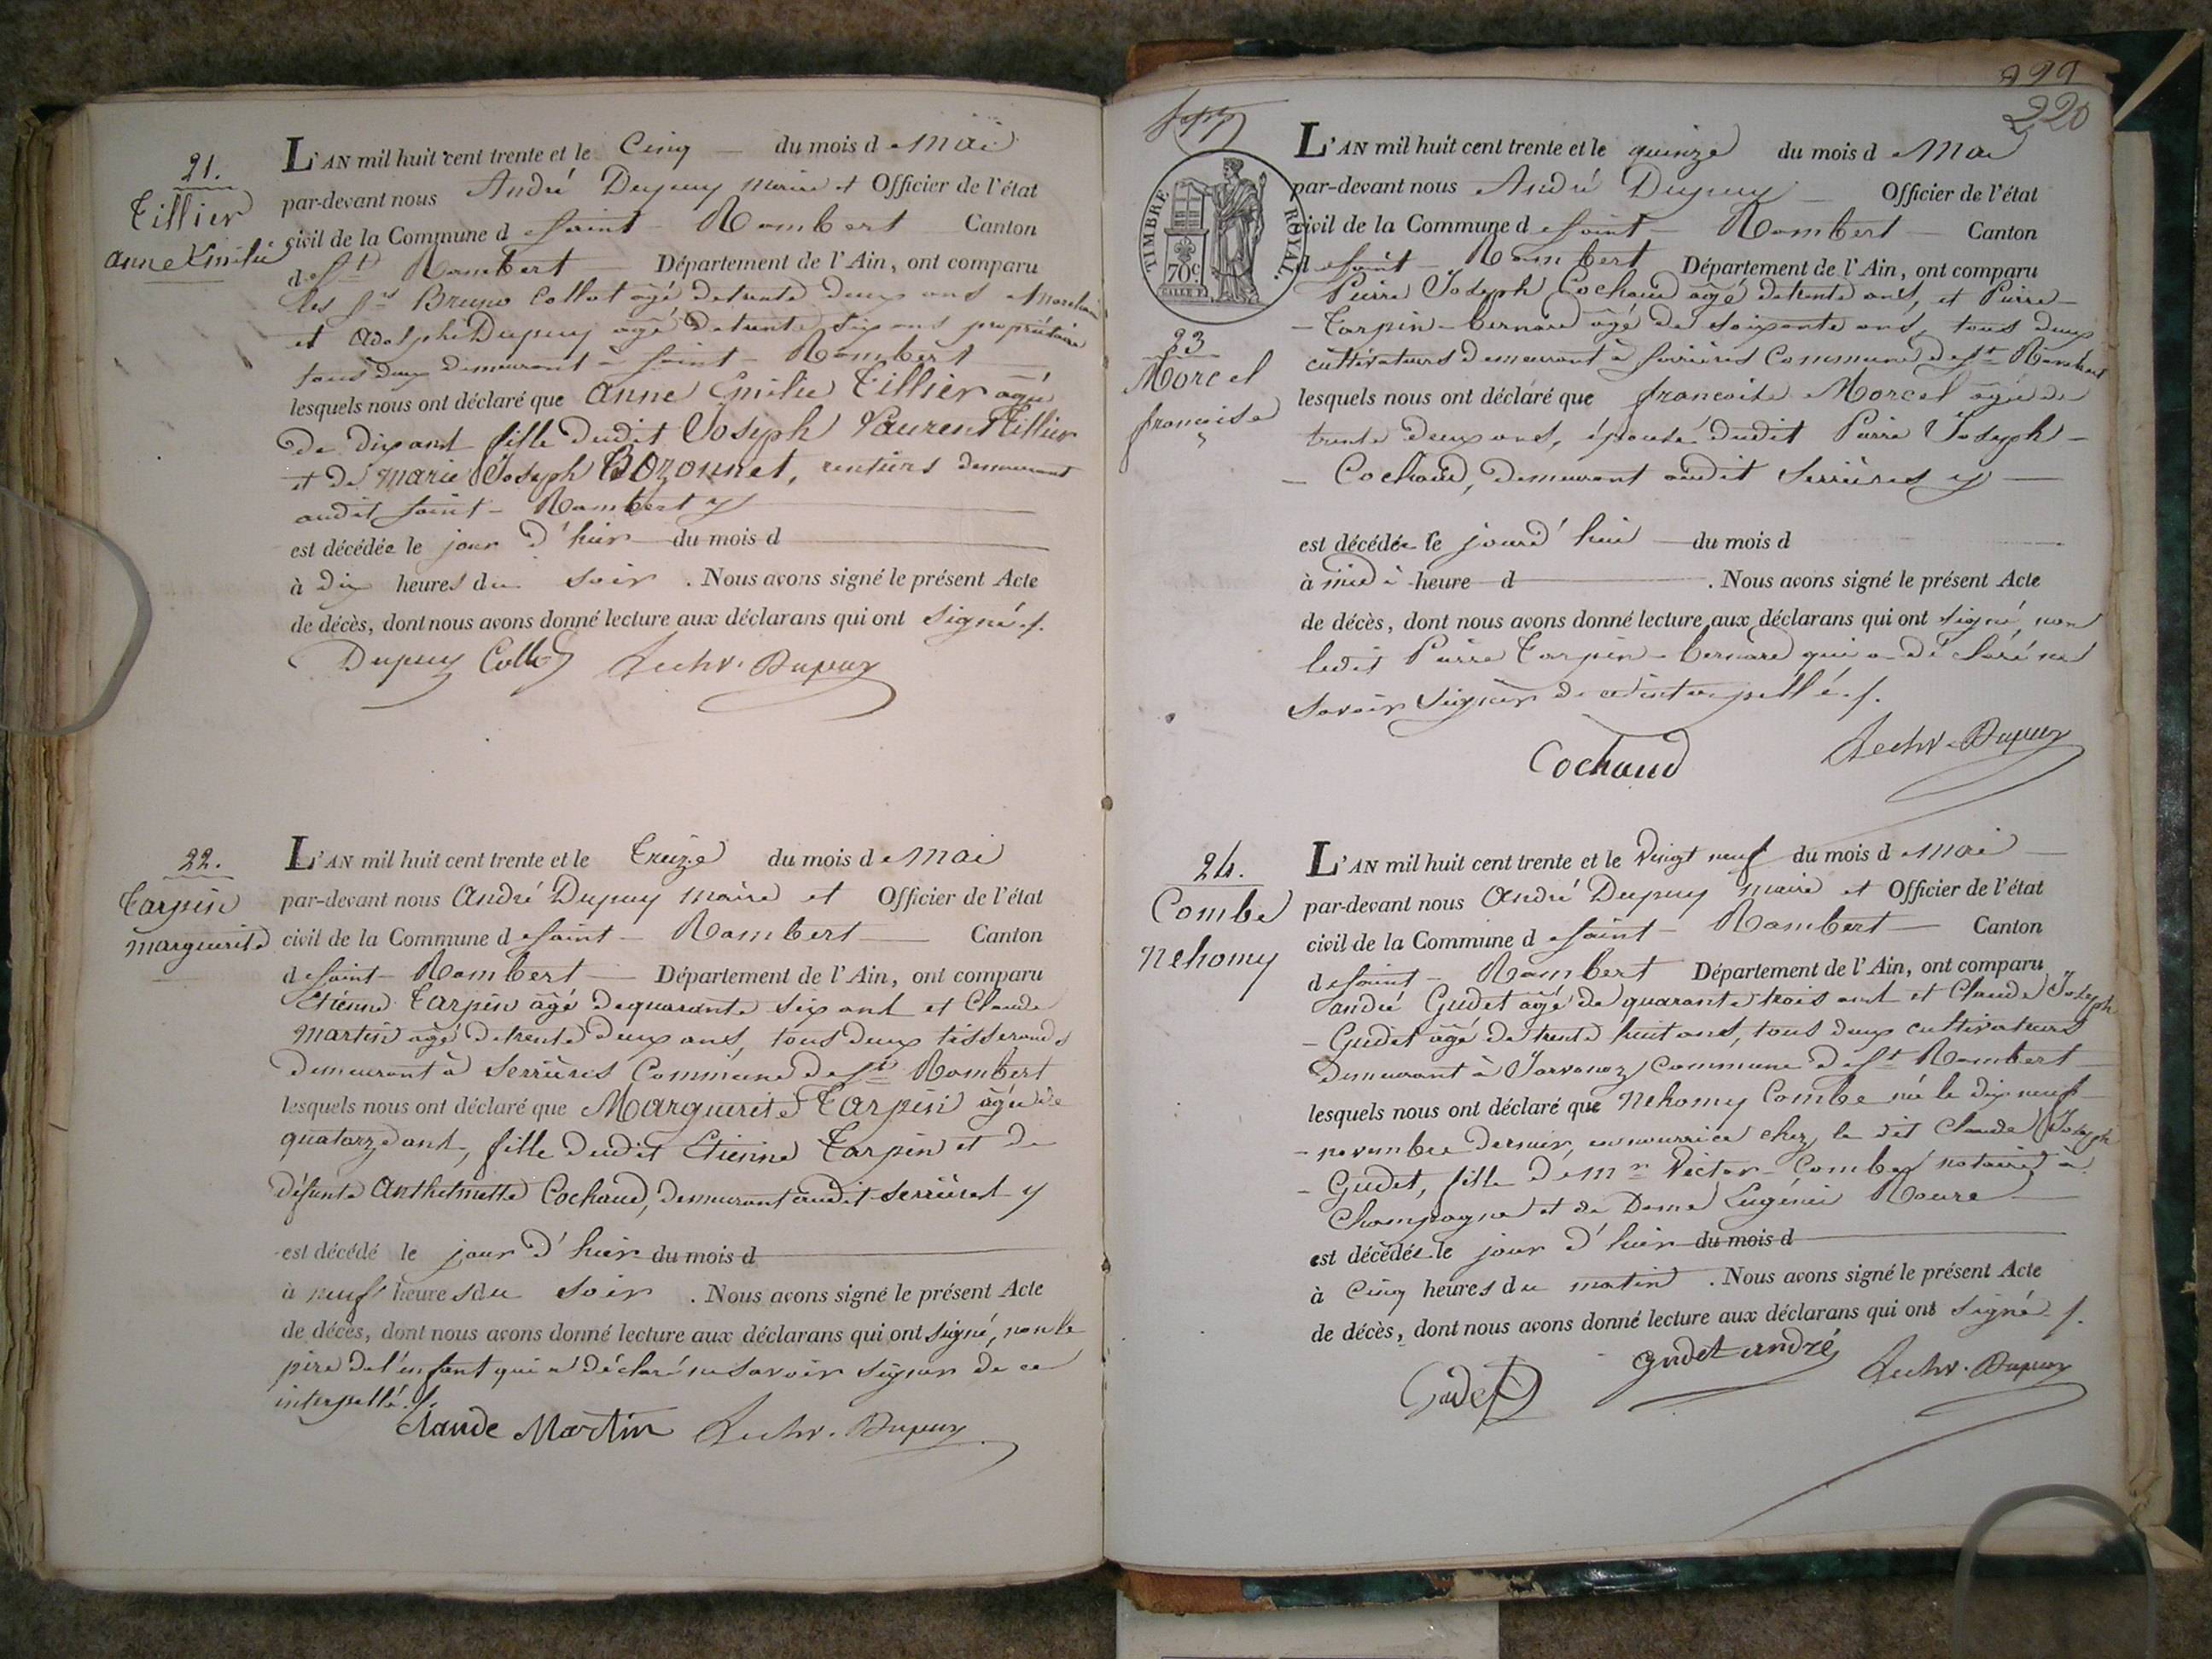 21.
Tillier
anne Emilie
L'AN mil huit cent trente et le Cinq du mois d e Mai
par-devant nous André Dupuy maire et Officier de l'état
civil de la Commune d e Saint - Rambert Canton
d e St Rambert Département de l'Ain, ont comparu
les Srs Bruno Collot âgé de trente deux ans Marchand
et Adolphe Dupuy âgé de trente six ans propriétaire
tous deux demeurant à Saint - Rambert
lesquels nous ont déclaré que Anne Emilie Tillier âgée
de dix ans fille dudit Joseph Laurent Tillier
et de Marie Joseph Bozonnet, rentiers demeurant
audit Saint - Rambert
est décédée le jour d'hier du mois d
à dix heures du soir . Nous avons signé le présent Acte
de décès, dont nous avons donné lecture aux déclarans qui ont signé ./.
Dupuy Collot Dupuy
22.
Tarpin
marguerite
L'AN mil huit cent trente et le Treize du mois d e Mai
par-devant nous André Dupuy maire et Officier de l'état
civil de la Commune d e Saint - Rambert Canton
d e Saint - Rambert Département de l'Ain, ont comparu
Etienne Tarpin âgé de quarante six ans et Claude
Martin âgé de trente deux ans, tous deux tisserands
demeurant à Serrières Commune de St Rambert
lesquels nous ont déclaré que Marguerite Tarpin âgée de
quatorze ans, fille dudit Etienne Tarpin et de
défunte Anthelmette Cochaud, demeurant audit Serrières y
est décédé le jour d'hier du mois d
à neuf heures du soir . Nous avons signé le présent Acte
de décès, dont nous avons donné lecture aux déclarans qui ont signé, non le
père de l'enfant qui a déclaré ne savoir signer de ce
interpellé ./.
Claude Martin Dupuy
220
TIMBRE ROYAL.
70c
23
Morcel
francoise
L'AN mil huit cent trente et le quinze du mois d e Mai
par-devant nous André Dupuy Officier de l'état
civil de la Commune d e Saint - Rambert Canton
d e Saint - Rambert Département de l'Ain, ont comparu
Pierre Joseph Cochaud âgé de trente ans, et Pierre
- Tarpin - bernard âgé de soixante ans, tous deux
cultivateurs demeurant à Serrières Commune de St Rambert
lesquels nous ont déclaré que francoise Morcel âgée de
trente deux ans, épouse dudit Pierre Joseph -
- Cochaud, demeurant audit Serrières y
est décédée le jourd'hui du mois d
à midi heure d . Nous avons signé le présent Acte
de décès, dont nous avons donné lecture aux déclarans qui ont signé, non
ledit Pierre Tarpin - bernard qui a déclaré ne
savoir signer de ce interpellé ./.
Cochaud Dupuy
24.
Combe
Nehomy
L'AN mil huit cent trente et le Vingt neuf du mois d e Mai
par-devant nous André Dupuy maire et Officier de l'état
civil de la Commune d e Saint - Rambert Canton
d e Saint - Rambert Département de l'Ain, ont comparu
andré Gudet âgé de quarante trois ans et Claude Joseph
- Gudet âgé de trente huit ans, tous deux cultivateurs
demeurant à Javornoz Commune de St Rambert
lesquels nous ont déclaré que Nehomy Combe né le dix neuf
- novembre dernier, en nourrice chez le dit Claude Joseph
- Gudet, fille de Mr Victor Combe notaire à
Champagne et de Dame Eugénie Roure
est décédée le jour d'hier du mois d
à Cinq heures du matin . Nous avons signé le présent Acte
de décès, dont nous avons donné lecture aux déclarans qui ont signé ./.
Gudet gudet andré Dupuy